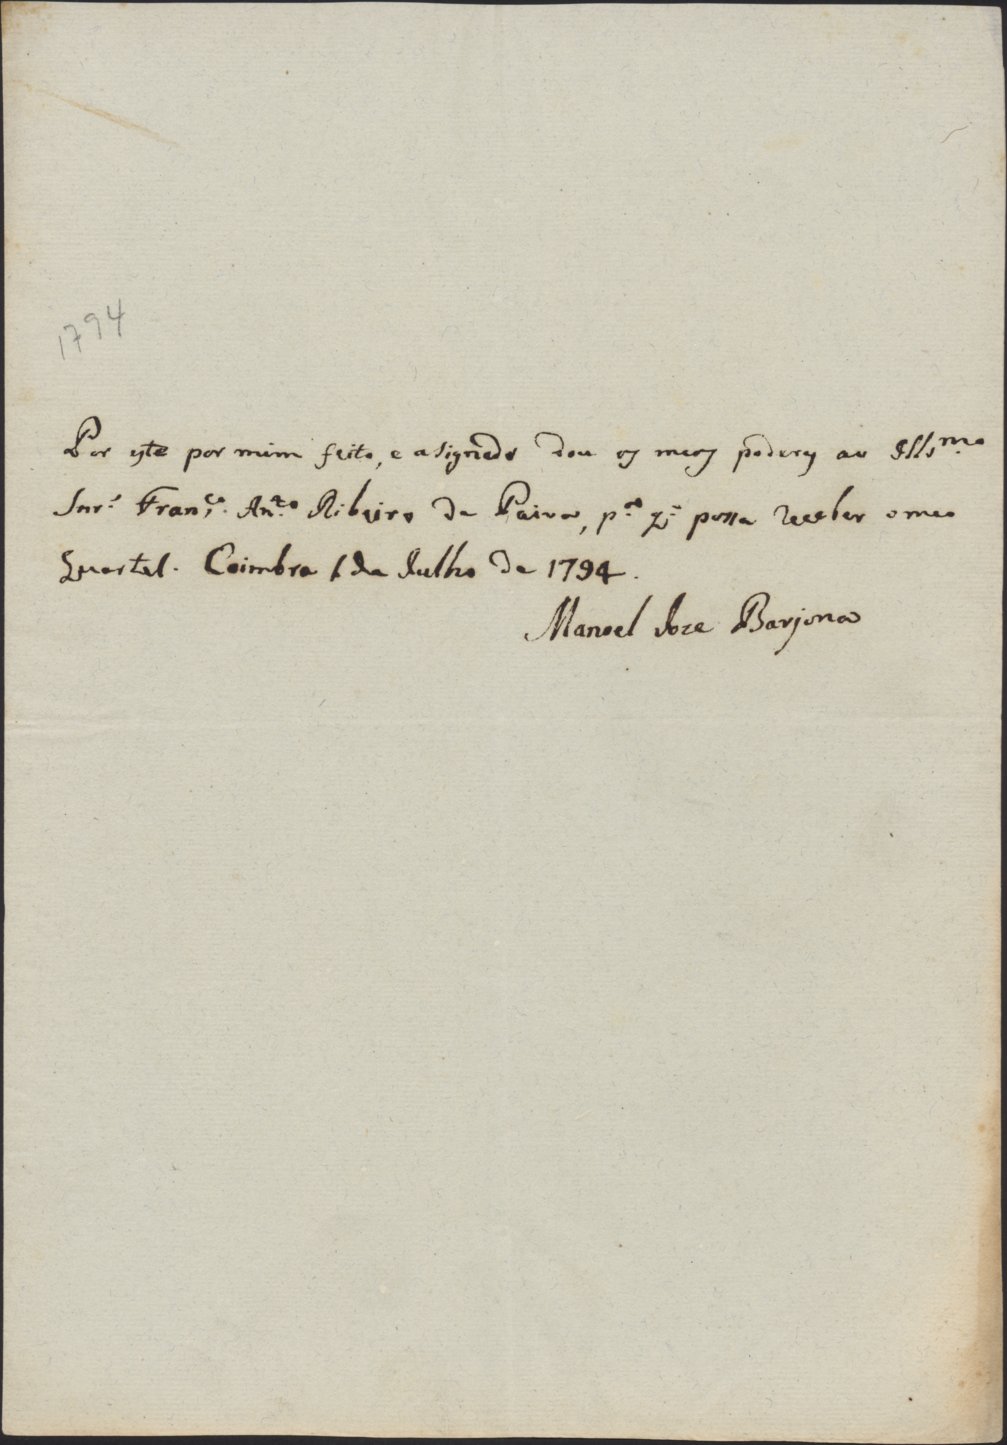 1794
Por este por mim feito, e asignado dou os meos poderes ao Ills.mo
Snr. Fran.co Ant.o Ribeiro de Paiva, p.a q. possa receber o meo
Quartel. Coimbra 1 de Julho de 1794.
Manoel Joze Barjona